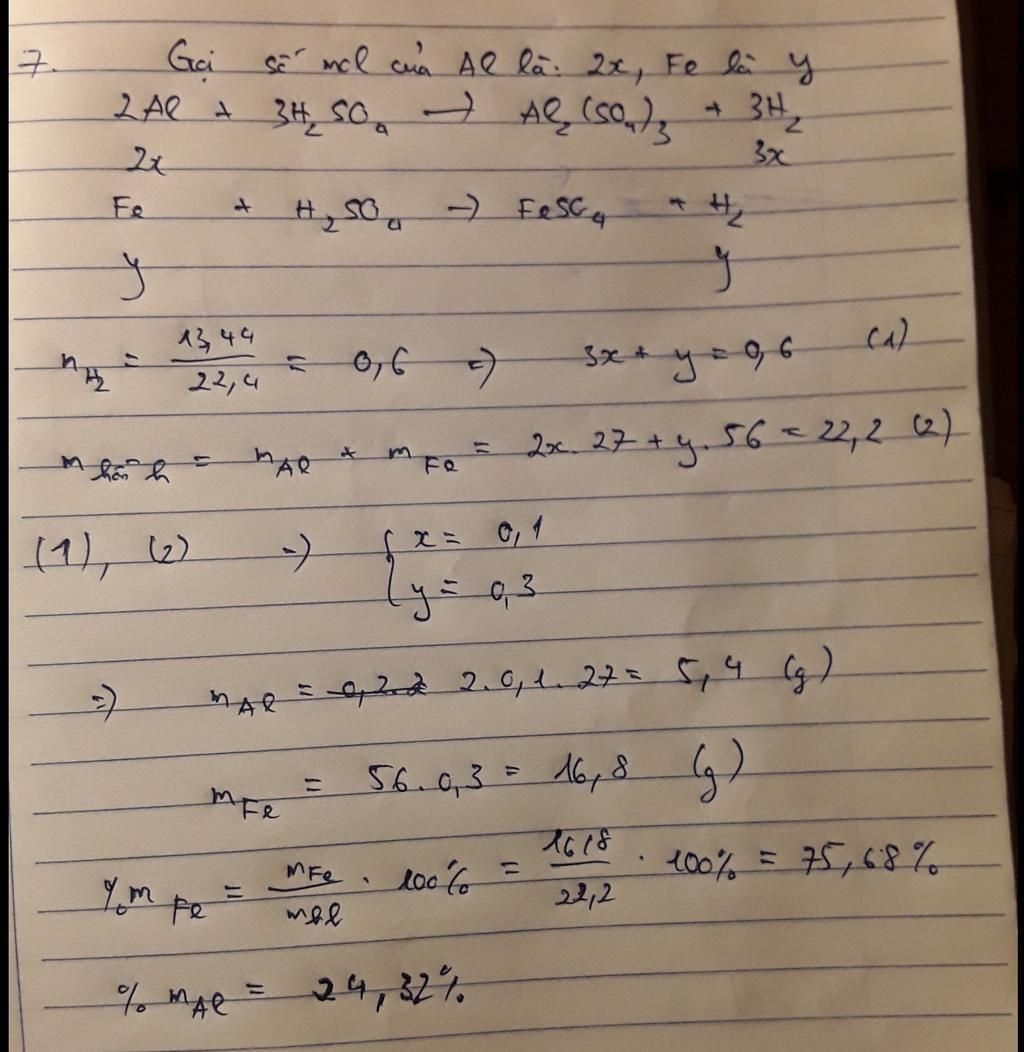 7. Gọi số mol của Al là: 2x, Fe là y
2Al + 3H₂SO₄ → Al₂(SO₄)₃ + 3H₂
2x 3x
Fe + H₂SO₄ → FeSO₄ + H₂
y y
n_H₂ = 13,44/22,4 = 0,6 => 3x + y = 0,6 (1)
m hỗn h = m_Al + m_Fe = 2x.27 + y.56 = 22,2 (2)
(1), (2) => { x = 0,1
y = 0,3
=> m_Al = 2.0,1.27 = 5,4 (g)
m_Fe = 56.0,3 = 16,8 (g)
%m_Fe = mFe/mhh . 100% = 16,8/22,2 . 100% = 75,68%
% m_Al = 24,32%